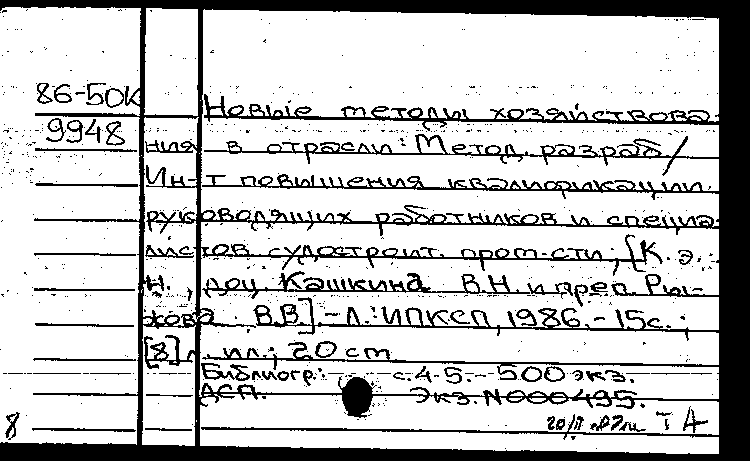 86-50К
9948
Новые методы хозяйствова-
ния в отрасли: Метод. разраб /
Ин-т повышения квалификации
руководящих работников и специа-
листов судостроит. пром-сти; [К. э.
н., доц. Кашкина В.Н. и преп. Ры-
жова В.В.] - Л.: ИПКСП, 1986. - 15с.;
[8] л. ил.; 20 см
Библиогр.: с. 4-5. - 500 экз.
ДСП. Экз. N000495.
8